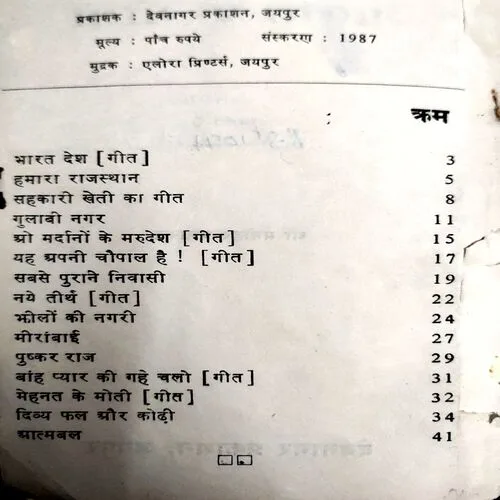 प्रकाशक : देवनागर प्रकाशन, जयपुर
मूल्य : पाँच रुपये संस्करण : 1987
मुद्रक : एलोरा प्रिण्टर्स, जयपुर
क्रम
भारत देश [गीत] 3
हमारा राजस्थान 5
सहकारी खेती का गीत 8
गुलाबी नगर 11
ओ मर्दानों के मरुदेश [गीत] 15
यह अपनी चौपाल है ! [गीत] 17
सबसे पुराने निवासी 19
नये तीर्थ [गीत] 22
झीलों की नगरी 24
मीरांबाई 27
पुष्कर राज 29
बांह प्यार की गहे चलो [गीत] 31
मेहनत के मोती [गीत] 32
दिव्य फल और कोढ़ी 34
आत्मबल 41